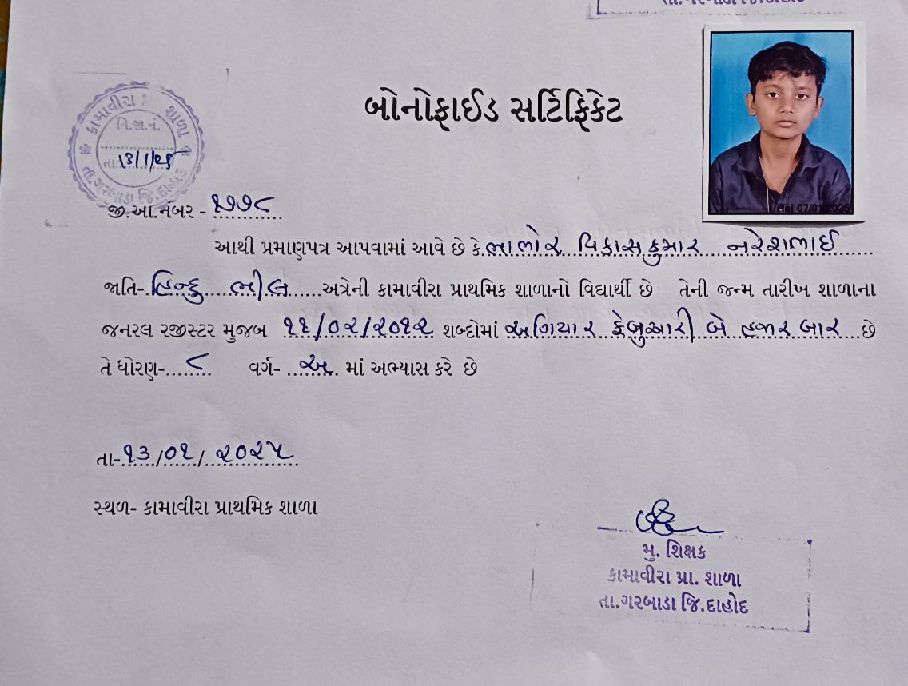 તા.ગરબાડા જિ.દાહોદ
બોનોફાઈડ સર્ટિફિકેટ
કામાવીરા શાળા
વિ.જા.નં.
તા. ૧૩/૧/૨૫
તા.ગરબાડા જિ.દાહોદ
જી.આ.નંબર - ૧૭૭૮
આથી પ્રમાણપત્ર આપવામાં આવે છે કે ભાભોર વિકાસકુમાર નરેશભાઈ
જાતિ- હિન્દુ ભીલ અત્રેની કામાવીરા પ્રાથમિક શાળાનો વિદ્યાર્થી છે તેની જન્મ તારીખ શાળાના
જનરલ રજીસ્ટર મુજબ ૧૧/૦૨/૨૦૧૨ શબ્દોમાં અગિયાર ફેબ્રુઆરી બે હજાર બાર છે
તે ધોરણ- ૮ વર્ગ- અ માં અભ્યાસ કરે છે
તા- ૧૩/૦૧/૨૦૨૫
સ્થળ- કામાવીરા પ્રાથમિક શાળા
મુ. શિક્ષક
કામાવીરા પ્રા. શાળા
તા.ગરબાડા જિ.દાહોદ